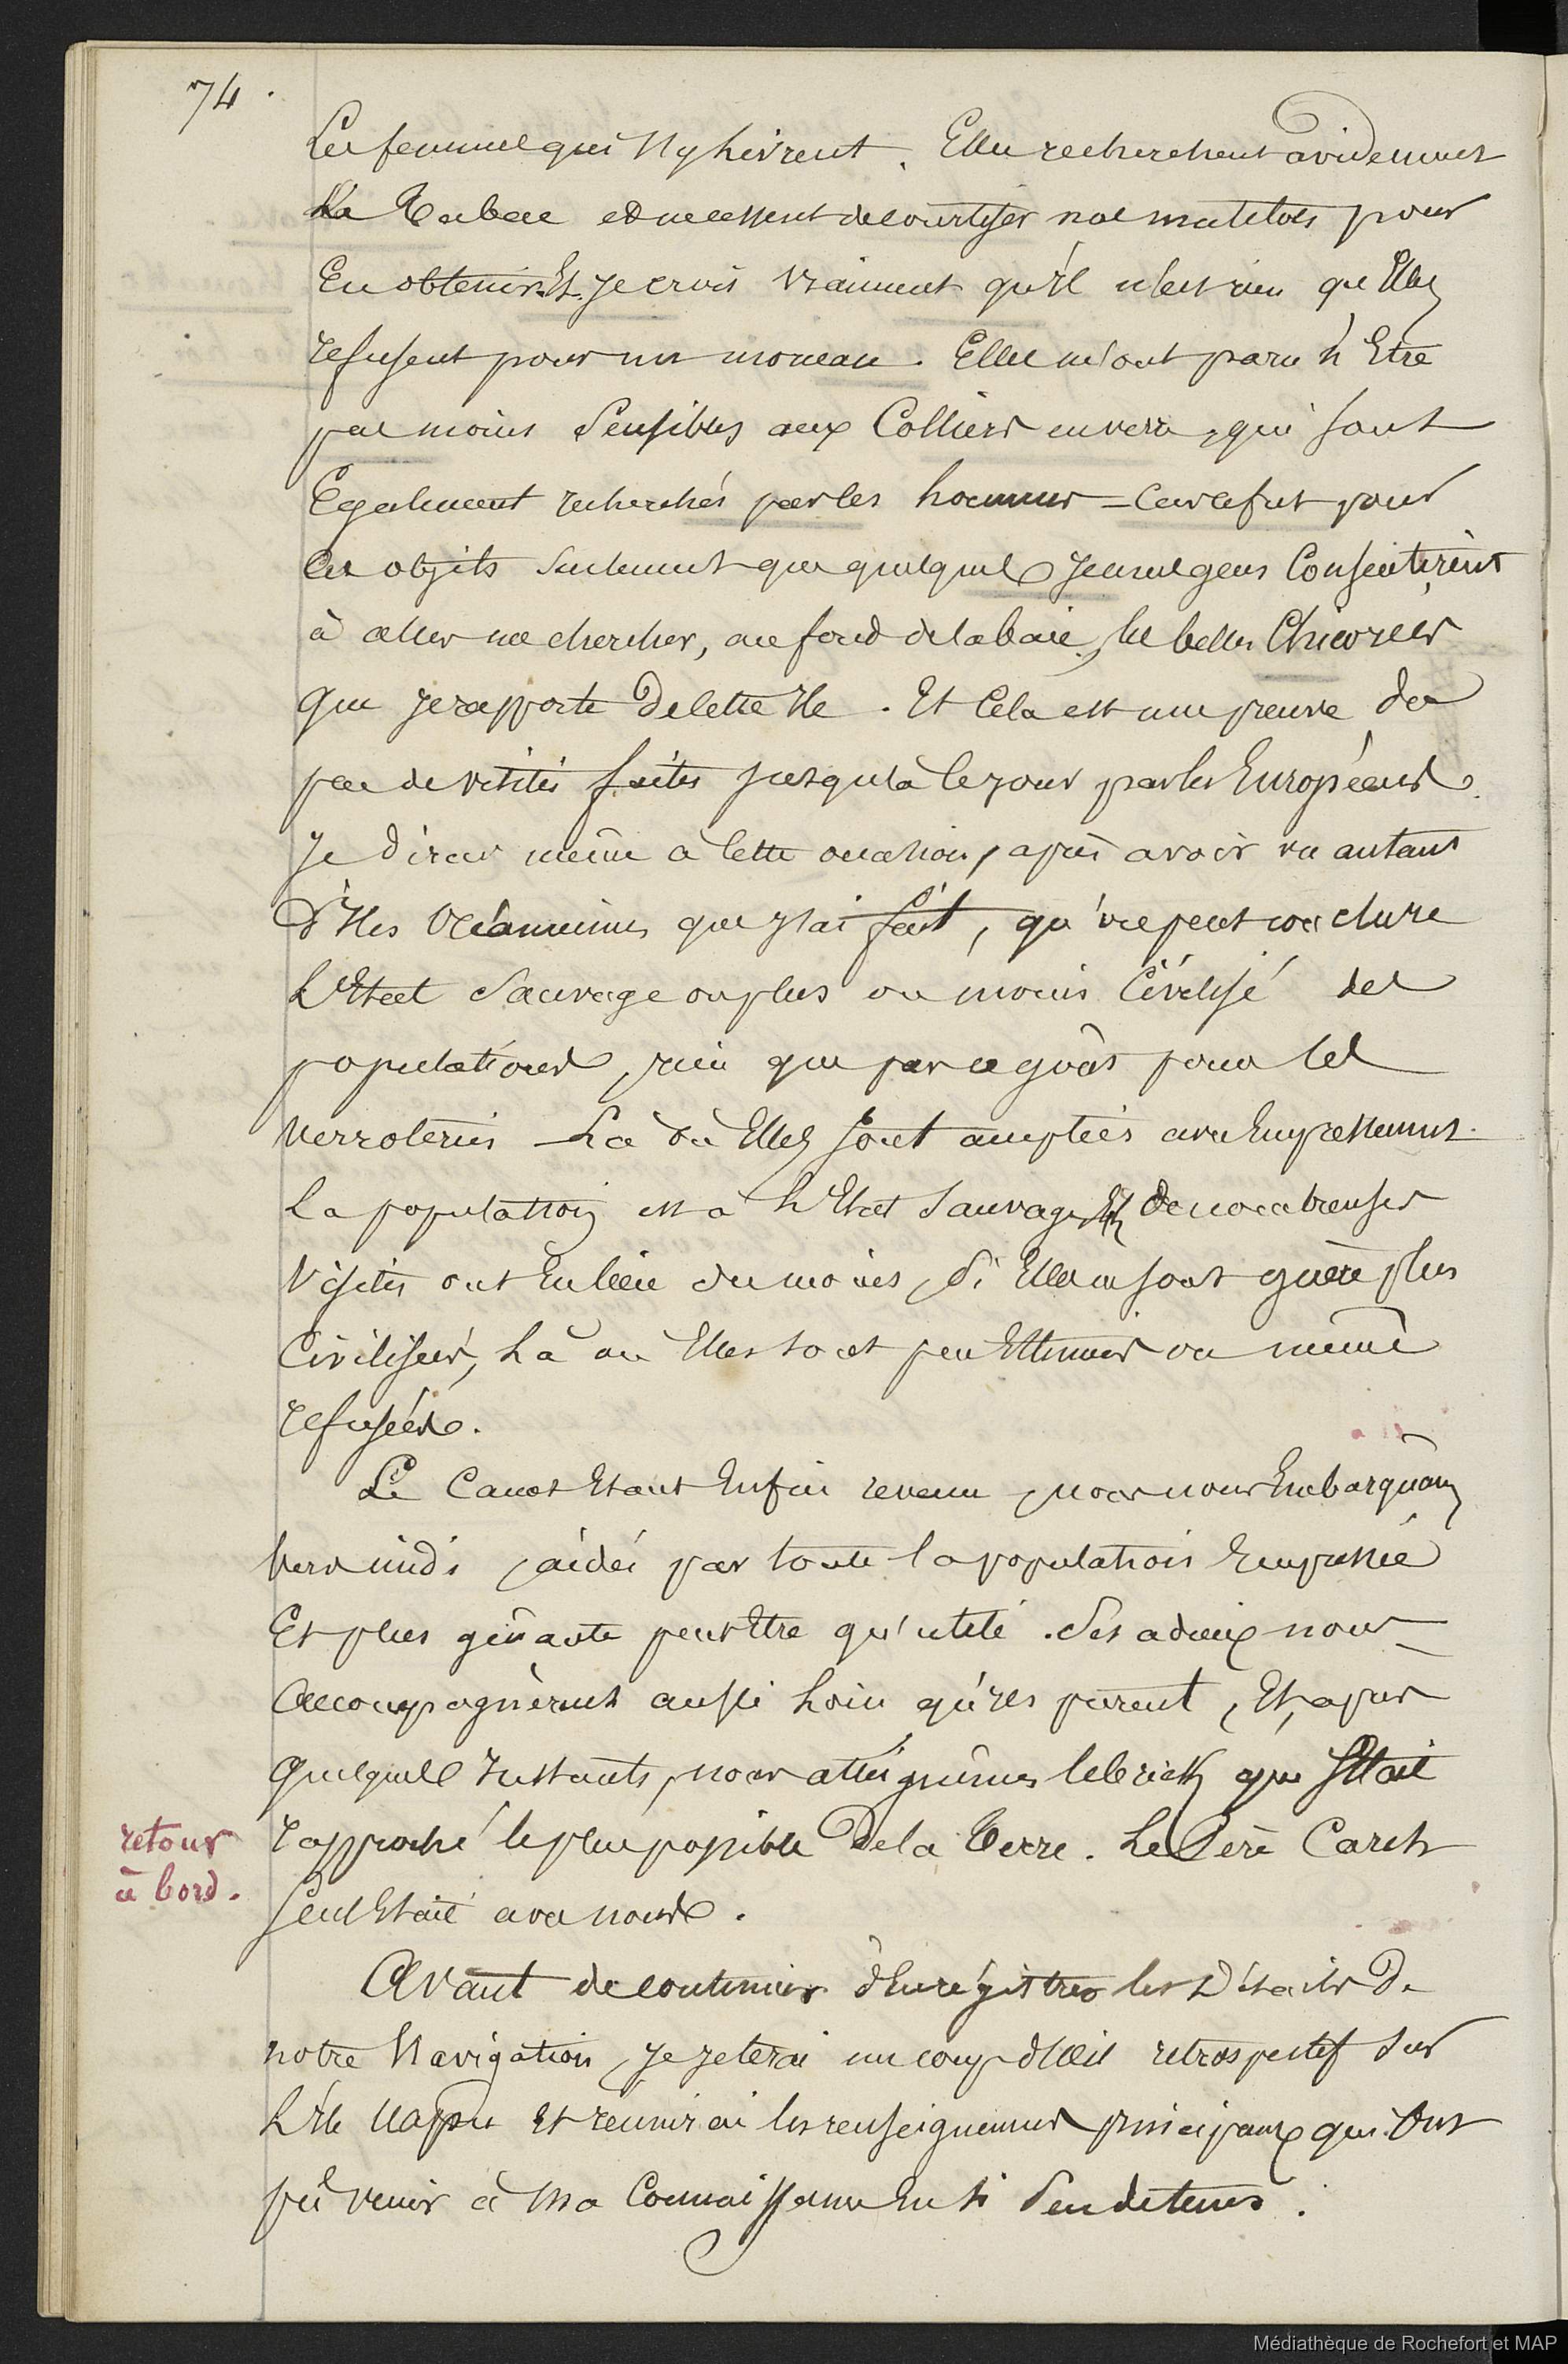 74.
Les femmes qui s'y livrent. Elles recherchent avidemment
Le Tabac et ne cessent de courtiser nos matelots pour
En obtenir. Et je crois vraiment qu'il n'est rien qu'Elles
refusent pour un morceau. Elles m'ont paru n'Etre
pas moins Sensibles aux Colliers en verre, qui sont
Egalement recherchés par les hommes = car ce fut pour
Ces objets seulement que quelques jeunes gens Consentirent
à aller me chercher, au fond de la baie, les belles Chicorées
que je rapporte De cette Ile. Et Cela est une preuve du
peu de visites faites jusqu'à ce jour par les Européens.
Je dirai même à Cette occasion, après avoir vu autant
D'Iles Océaniennes que J'ai fait, qu'on peut conclure
L'Etat Sauvage ou plus ou moins Civilisé des
populations, rien que par ce goût pour les
Verroteries – Là où Elles sont acceptées avec Empressement.
La population est à L'Etat Sauvage Et de nombreuses
Visites ont Eu lieu du moins, Si Elles ne sont guère plus
Civilisées, Là où Elles sont peu Estimées ou même
refusées.
Le Canot Etant Enfin revenu, nous nous Embarquâmes
Vers midi, aidés par toute la population Empressée
Et plus gênante peut Etre qu'utile. Ses adieux nous
Accompagnèrent aussi Loin qu'ils purent, Et, après
quelques Instants, nous atteignîmes le brick qui s'Etait
rapproché le plus possible De la Terre. Le Père Caret
seul Etait avec nous.
retour
à bord.
Avant de continuer d'Enrégistrer les Détails De
notre Navigation, je jeterai un coup d'Œil retrospectif Sur
L'Ile Uapou Et réunirai les renseignemens principaux qui Ont
pû venir à Ma Connaissance En si peu de tems.
Médiathèque de Rochefort et MAP